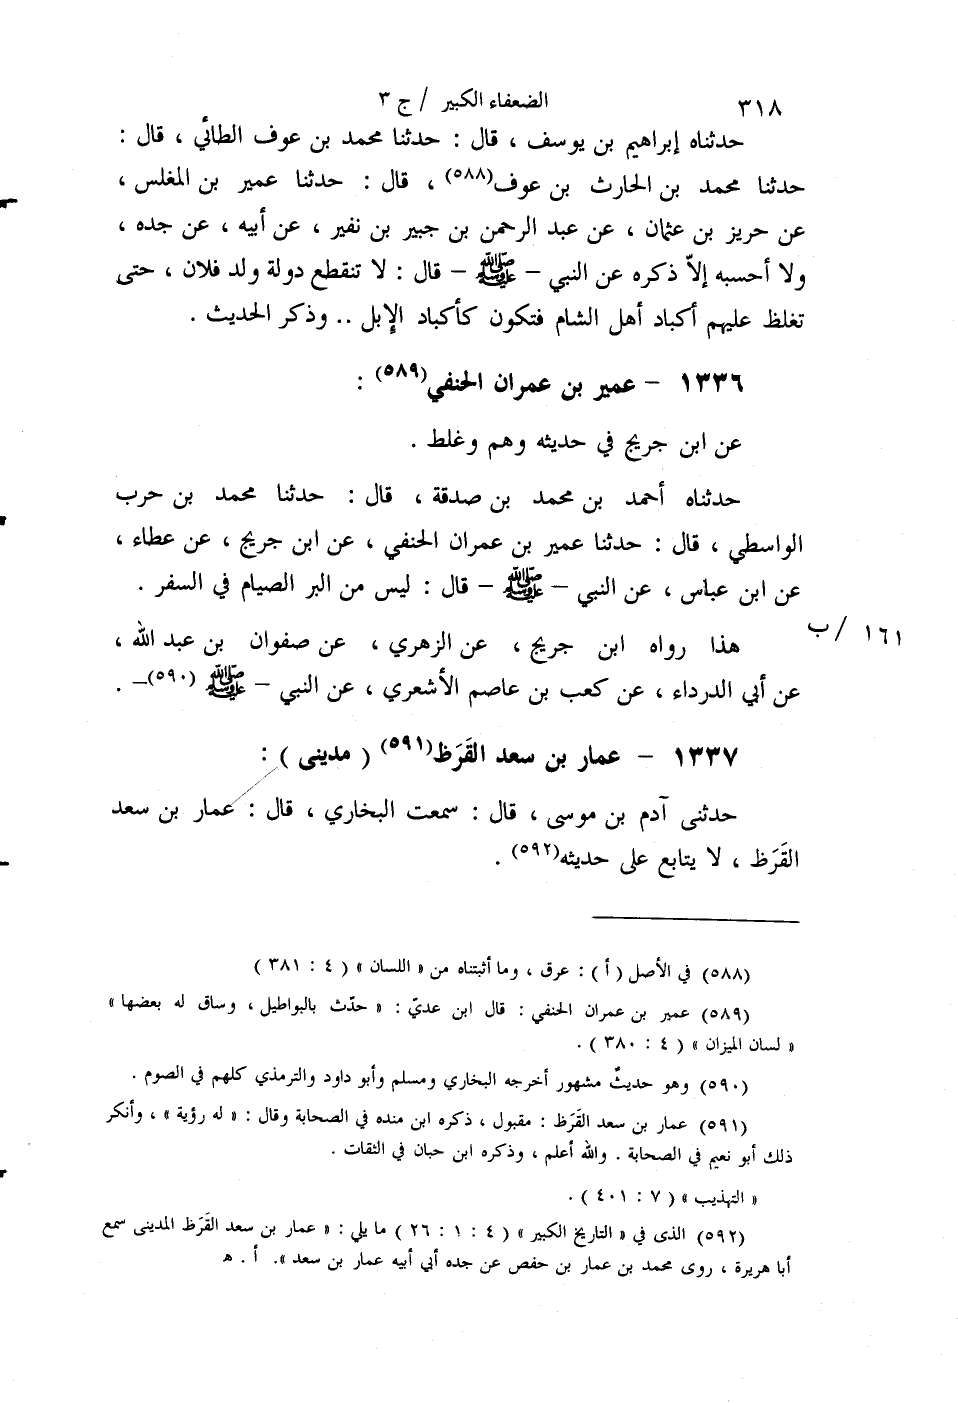 ٣١٨ الضعفاء الكبير / ج ٣
حدثناه إبراهيم بن يوسف ، قال : حدثنا محمد بن عوف الطائي ، قال :
حدثنا محمد بن الحارث بن عوف(٥٨٨) ، قال : حدثنا عمير بن المغلس ،
عن حريز بن عثمان ، عن عبد الرحمن بن جبير بن نفير ، عن أبيه ، عن جده ،
ولا أحسبه إلاّ ذكره عن النبي – ﷺ – قال : لا تنقطع دولة ولد فلان ، حتى
تغلظ عليهم أكباد أهل الشام فتكون كأكباد الإبل .. وذكر الحديث .
١٣٣٦ – عمير بن عمران الحنفي(٥٨٩) :
عن ابن جريج في حديثه وهم وغلط .
حدثناه أحمد بن محمد بن صدقة ، قال : حدثنا محمد بن حرب
الواسطي ، قال : حدثنا عمير بن عمران الحنفي ، عن ابن جريج ، عن عطاء ،
عن ابن عباس ، عن النبي – ﷺ – قال : ليس من البر الصيام في السفر .
١٦١ /ب
هذا رواه ابن جريج ، عن الزهري ، عن صفوان بن عبد الله ،
عن أبي الدرداء ، عن كعب بن عاصم الأشعري ، عن النبي – ﷺ (٥٩٠)– .
١٣٣٧ – عمار بن سعد القَرَظ(٥٩١) ( مدينى ) :
حدثنى آدم بن موسى ، قال : سمعت البخاري ، قال : عمار بن سعد
القَرَظ ، لا يتابع على حديثه(٥٩٢) .
(٥٨٨) في الأصل ( أ ) : عرق ، وما أثبتناه من « اللسان » ( ٤ : ٣٨١ )
(٥٨٩) عمير بن عمران الحنفي : قال ابن عديّ : « حدّث بالبواطيل ، وساق له بعضها »
« لسان الميزان » ( ٤ : ٣٨٠ ) .
(٥٩٠) وهو حديثٌ مشهور أخرجه البخاري ومسلم وأبو داود والترمذي كلهم في الصوم .
(٥٩١) عمار بن سعد القَرَظ : مقبول ، ذكره ابن منده في الصحابة وقال : « له رؤية » ، وأنكر
ذلك أبو نعيم في الصحابة . والله أعلم ، وذكره ابن حبان في الثقات .
« التهذيب » ( ٧ : ٤٠١ ) .
(٥٩٢) الذى في « التاريخ الكبير » ( ٤ : ١ : ٢٦ ) ما يلي : « عمار بن سعد القَرَظ المدينى سمع
أبا هريرة ، روى محمد بن عمار بن حفص عن جده أبي أبيه عمار بن سعد ». أ . هـ